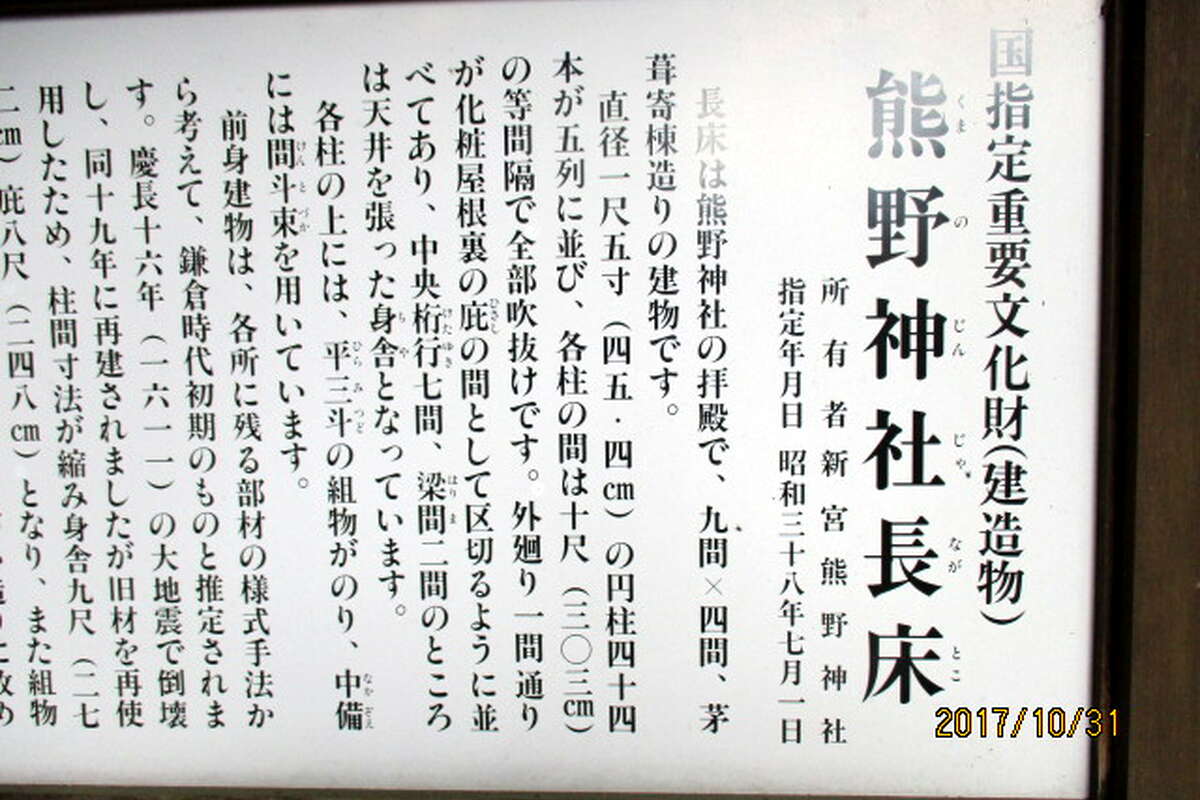 国指定重要文化財(建造物)
熊野神社長床
くまのじんじゃながとこ
所有者新宮熊野神社
指定年月日 昭和三十八年七月一日
長床は熊野神社の拝殿で、九間×四間、茅
葺寄棟造りの建物です。
直径一尺五寸(四五・四㎝)の円柱四十四
本が五列に並び、各柱の間は十尺(三〇三㎝)
の等間隔で全部吹抜けです。外廻り一間通り
が化粧屋根裏の庇の間として区切るように並
ひさし
べてあり、中央桁行七間、梁間二間のところ
けたゆき はりま
は天井を張った身舎となっています。
もや
各柱の上には、平三斗の組物がのり、中備
ひらみつど なかぞえ
には間斗束を用いています。
けんとづか
前身建物は、各所に残る部材の様式手法か
ら考えて、鎌倉時代初期のものと推定されま
す。慶長十六年(一六一一)の大地震で倒壊
し、同十九年に再建されましたが旧材を再使
用したため、柱間寸法が縮み身舎九尺(二七
二㎝)庇八尺(二四八㎝)となり、また組物
2017/10/31